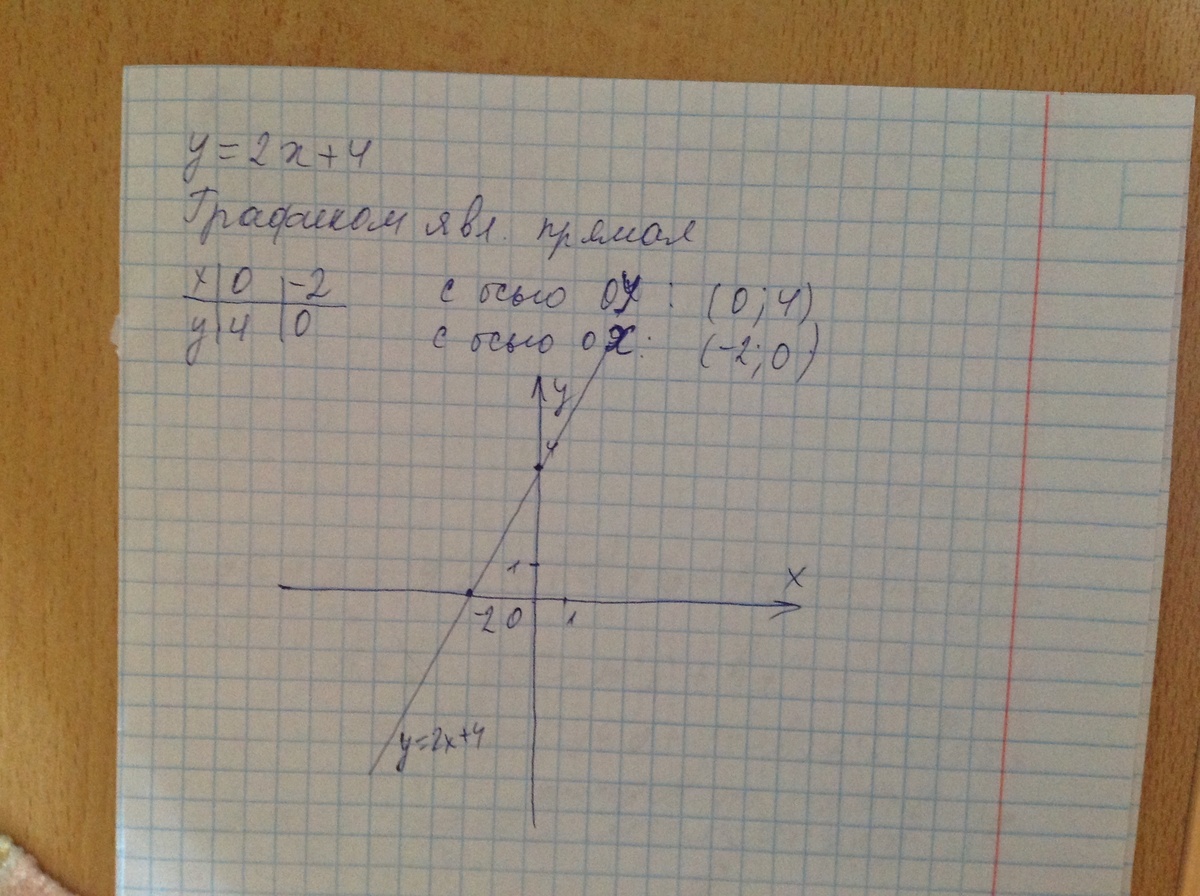 y=2x+4
Графиком явл. прямая
x 0 -2
y 4 0
с осью 0y : (0;4)
с осью 0x: (-2;0)
y
4
1
x
-2 0 1
y=2x+4